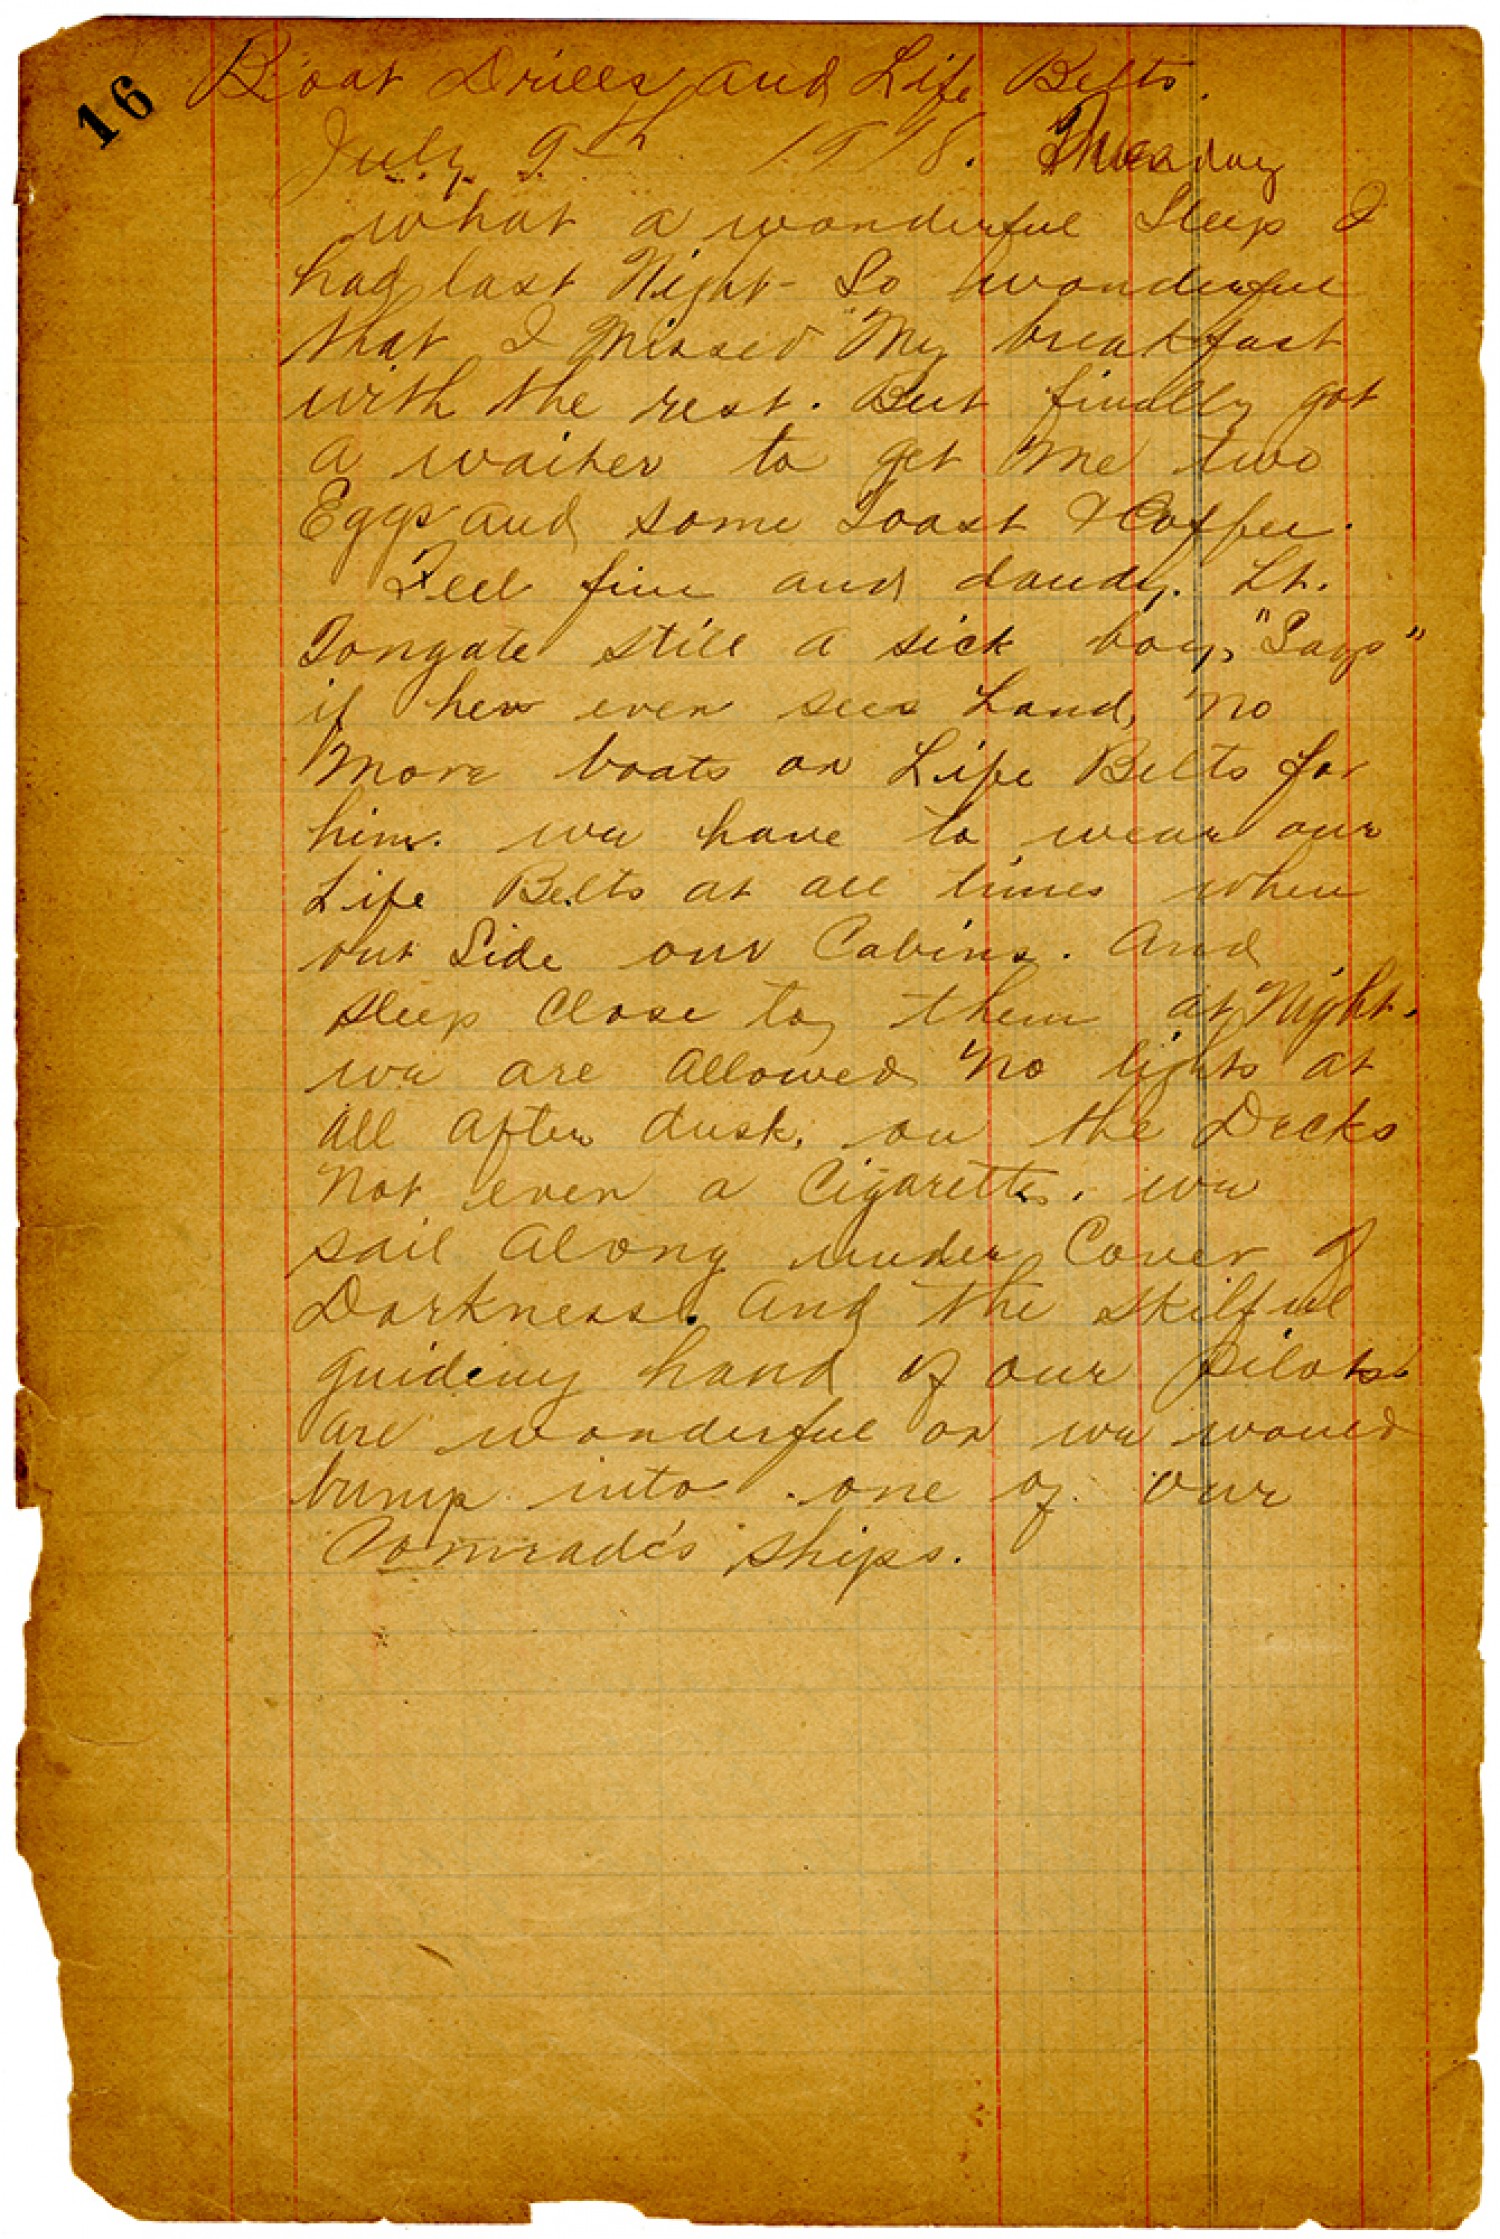 16
Boat Drills and Life Belts.
July 9th 1918. Thuesday
what a wonderful Sleep I
had last Night - So wonderful
that I Missed My breakfast
with the rest. But finally got
a waiter to get Me two
Eggs and some Toast & Coffee.
Feel fine and dandy. Lt.
Tongate still a sick boy, "Says"
if her ever sees Land, No
More boats or Life Belts for
him. we have to wear our
Life Belts at all times when
out Side our Cabins. And
sleep Close to, them at Night.
we are allowed No lights at
all After dusk, on the Decks
Not even a Cigarette. we
sail Along under Cover of
Darkness. And the skilful
guiding hand of our pilots
are wonderful or we would
bump into one of our
Comrade's ships.